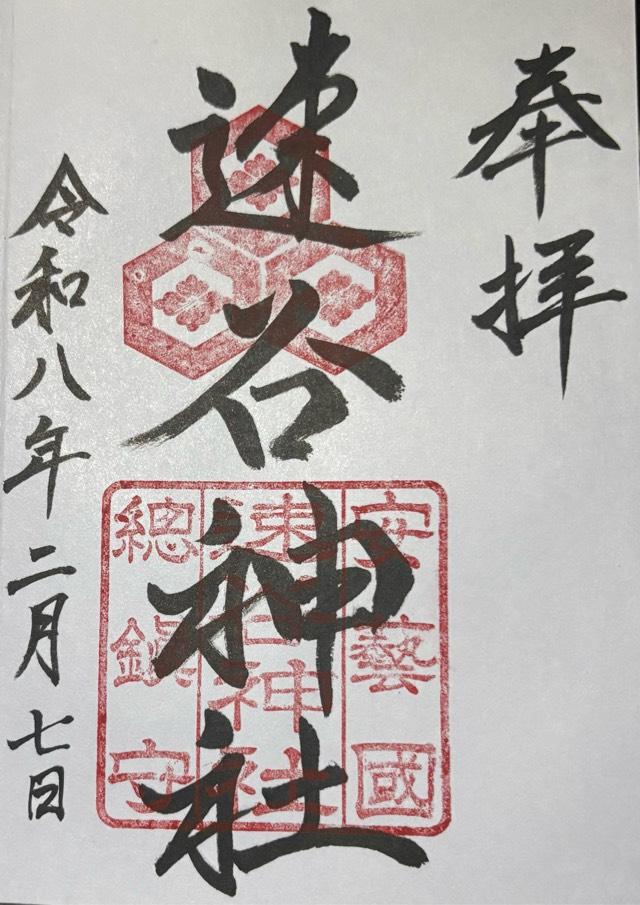 奉拝
速谷神社
安藝國
速谷神社
總鎮守
令和八年二月七日